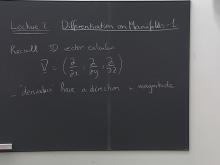 Lecture 2 Differentiation on Manifolds - 1
Recall 3D vector calculus
∇ = (∂/∂x, ∂/∂y, ∂/∂z)
- derivatives have a direction + magnitude